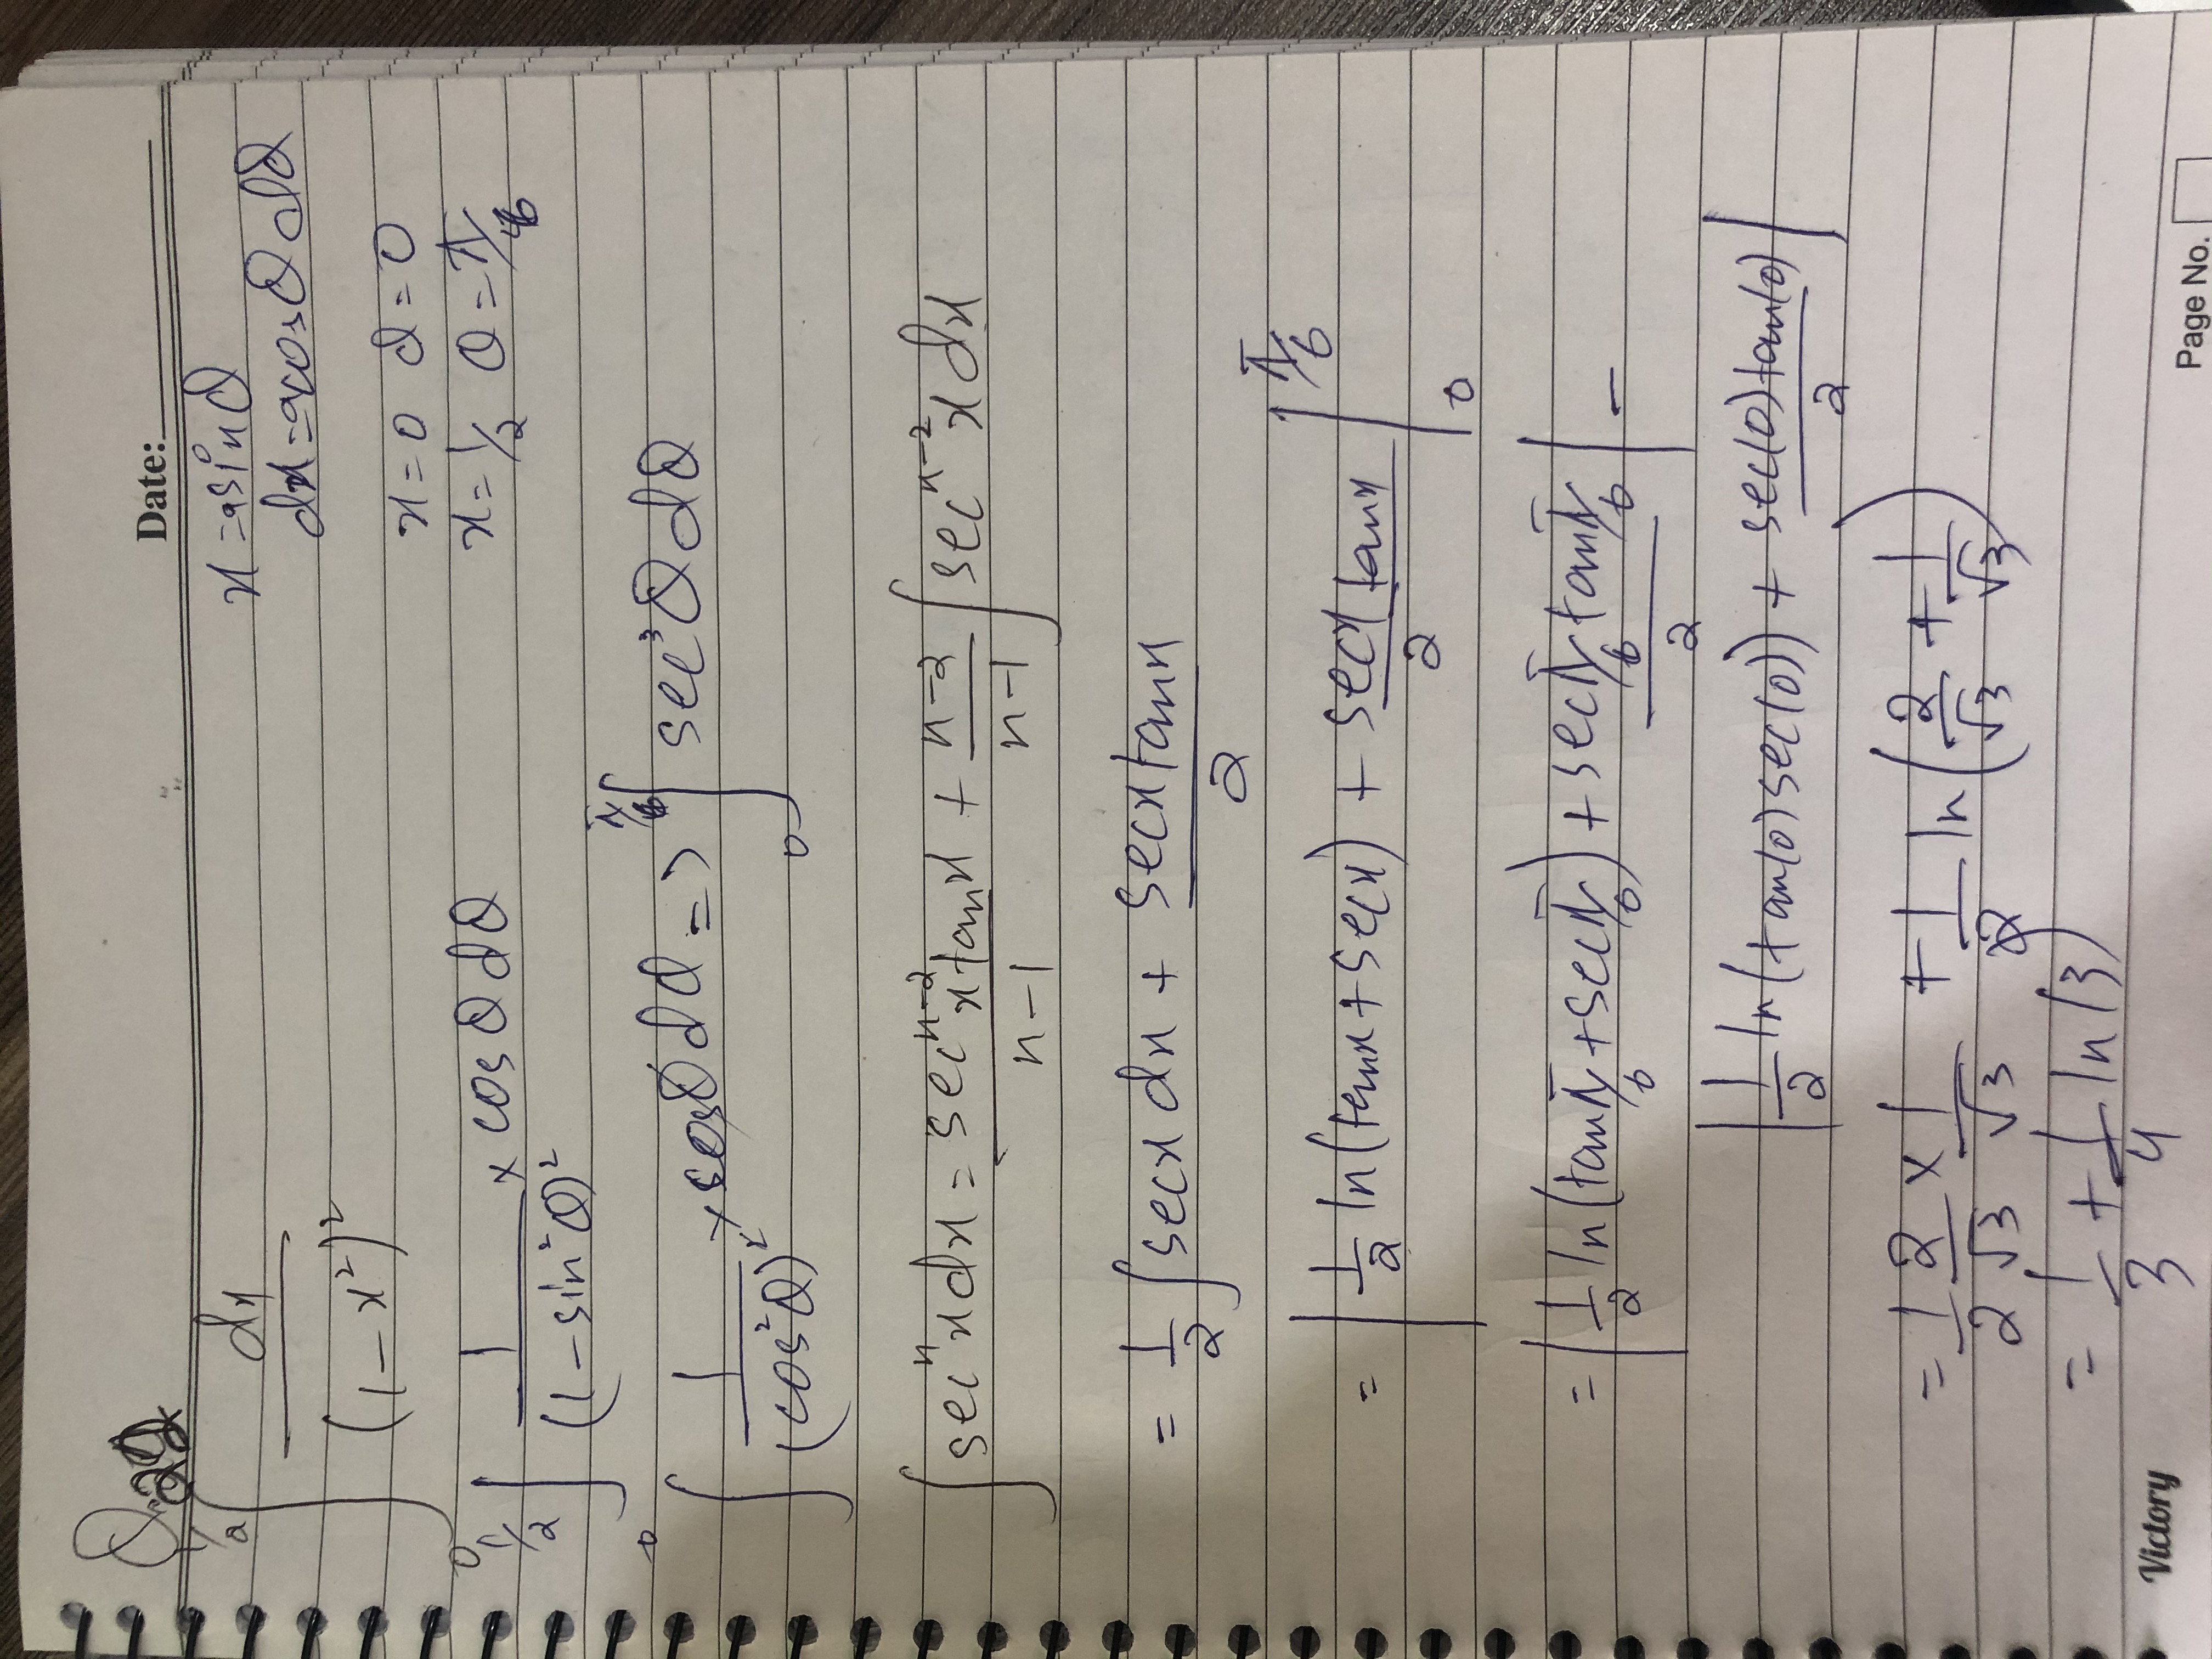 Q.29
Date:
x = a sinθ
dx = a cosθ dθ
∫₀^{1/2} dx / (1 - x²)²
x = 0 θ = 0
x = 1/2 θ = π/6
∫₀^{1/2} 1/(1 - sin²θ)² × cosθ dθ
∫ 1/(cos²θ)² × cosθ dθ => ∫₀^{π/6} sec³θ dθ
∫ secⁿx dx = secⁿ⁻²x tanx / (n-1) + (n-2)/(n-1) ∫ secⁿ⁻²x dx
= 1/2 ∫ secx dx + secx tanx / 2
= | 1/2 ln(tanx + secx) + secx tanx / 2 |₀^{π/6}
= | 1/2 ln(tan π/6 + sec π/6) + sec π/6 tan π/6 / 2 | -
| 1/2 ln(tan(0) sec(0)) + sec(0) tan(0) / 2 |
= 1/2 2/√3 × 1/√3 + 1/2 ln(2/√3 + 1/√3)
= 1/3 + 1/4 ln(3)
Victory
Page No.